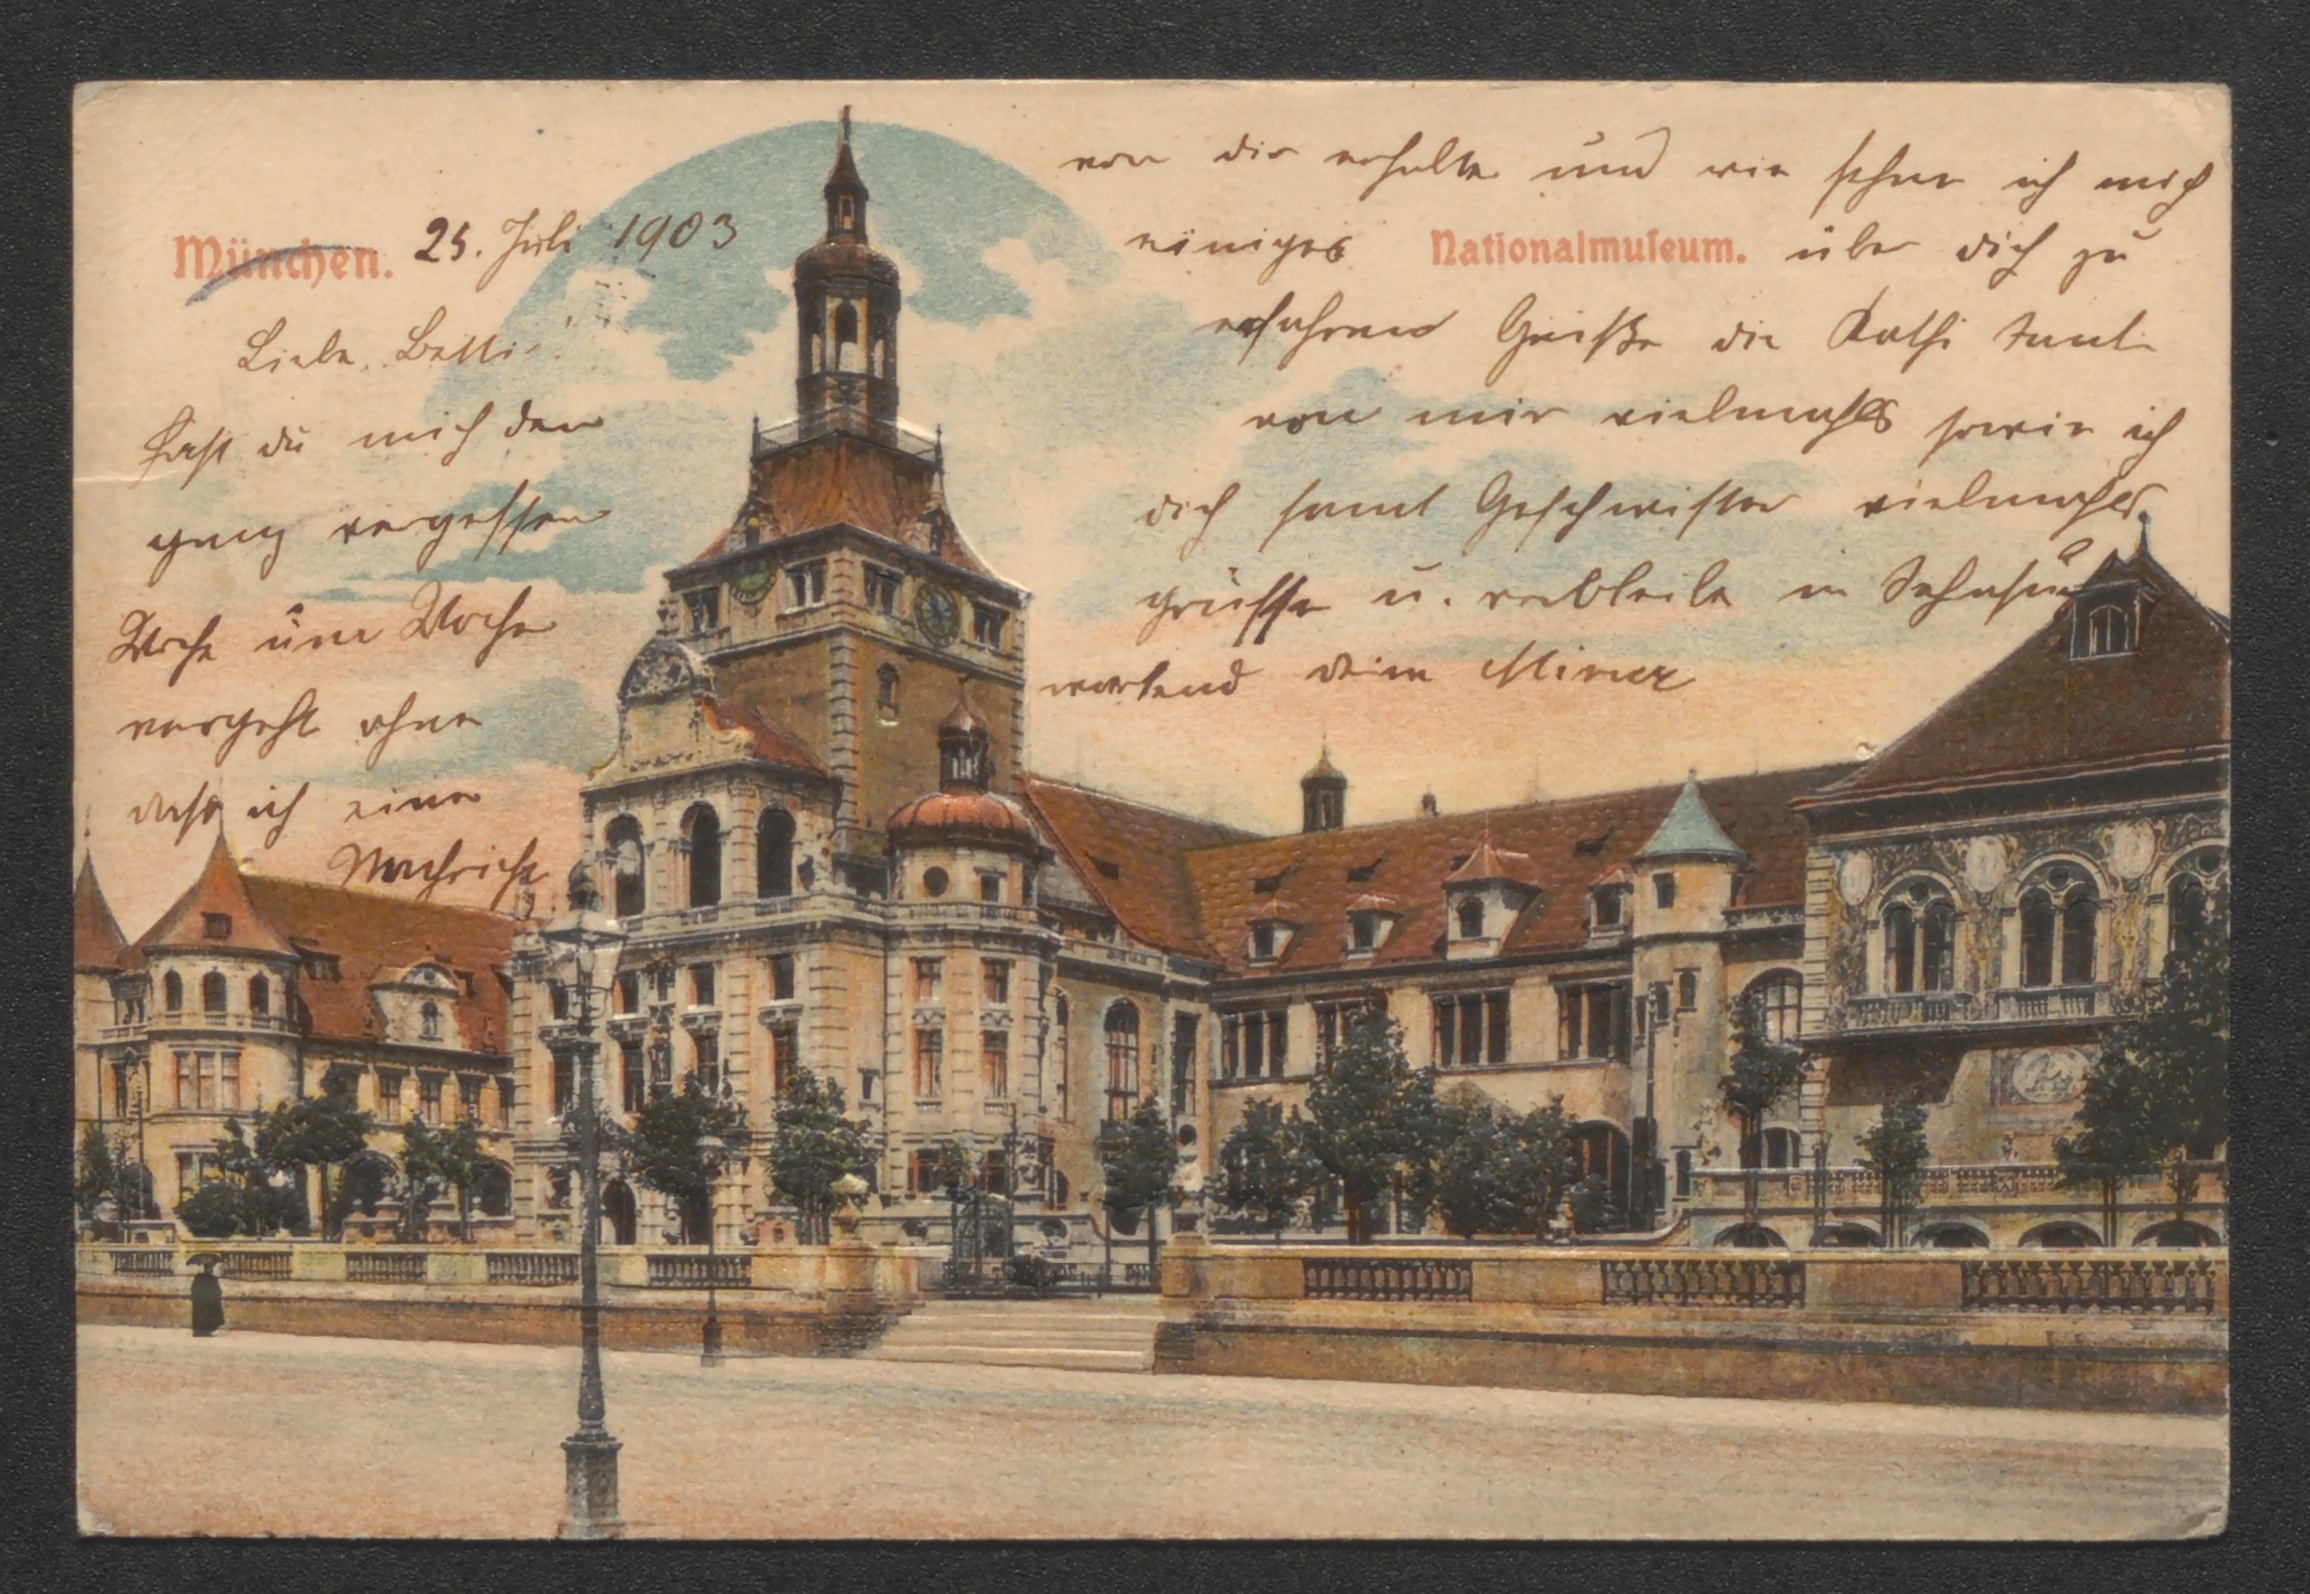 München. 25. Juli 1903
Liebe Betti!
Hast du mich den
ganz vergessen
Woche um Woche
vergeht ohne
dass ich eine
Nachricht
von dir erhalte und wie sehne ich mich
einiges Nationalmuseum. über dich zu
erfahren Grüße die Kathi samt
von mir vielmahls sowie ich
dich samt Geschwister vielmahls
grüsse u. verbleibe in Sehnsucht
wartend deine